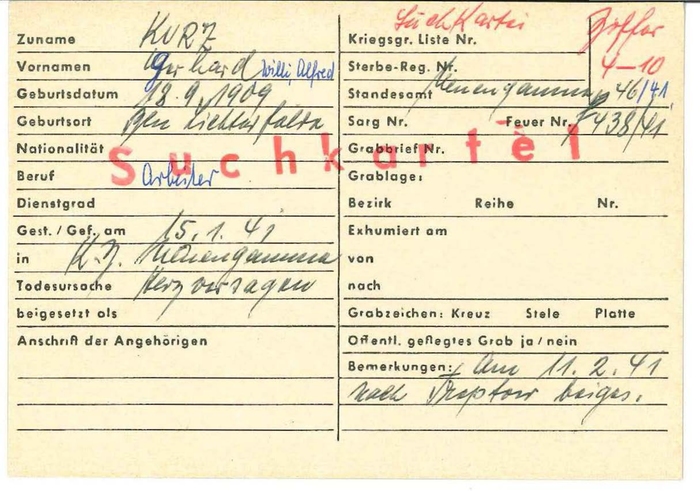 Zuname KURZ
Vornamen Gerhard Willi, Alfred
Geburtsdatum 18.9.1909
Geburtsort Bln Lichterfelde
Nationalität
Suchkartei
Beruf Arbeiter
Dienstgrad
Gest./Gef. am 15.1.41
in K.Z. Neuengamme
Todesursache Herzversagen
beigesetzt als
Anschrift der Angehörigen
SuchKartei
Kriegsgr. Liste Nr.
Sterbe-Reg. Nr. 4-10
Standesamt Neuengamme 46/41
Sarg Nr. Feuer Nr. 438/41
Grabbrief Nr.
Grablage:
Bezirk Reihe Nr.
Exhumiert am
von
nach
Grabzeichen: Kreuz Stele Platte
Öffentl. gepflegtes Grab ja/nein
Bemerkungen: Am 11.2.41
nach Treptow beiges.